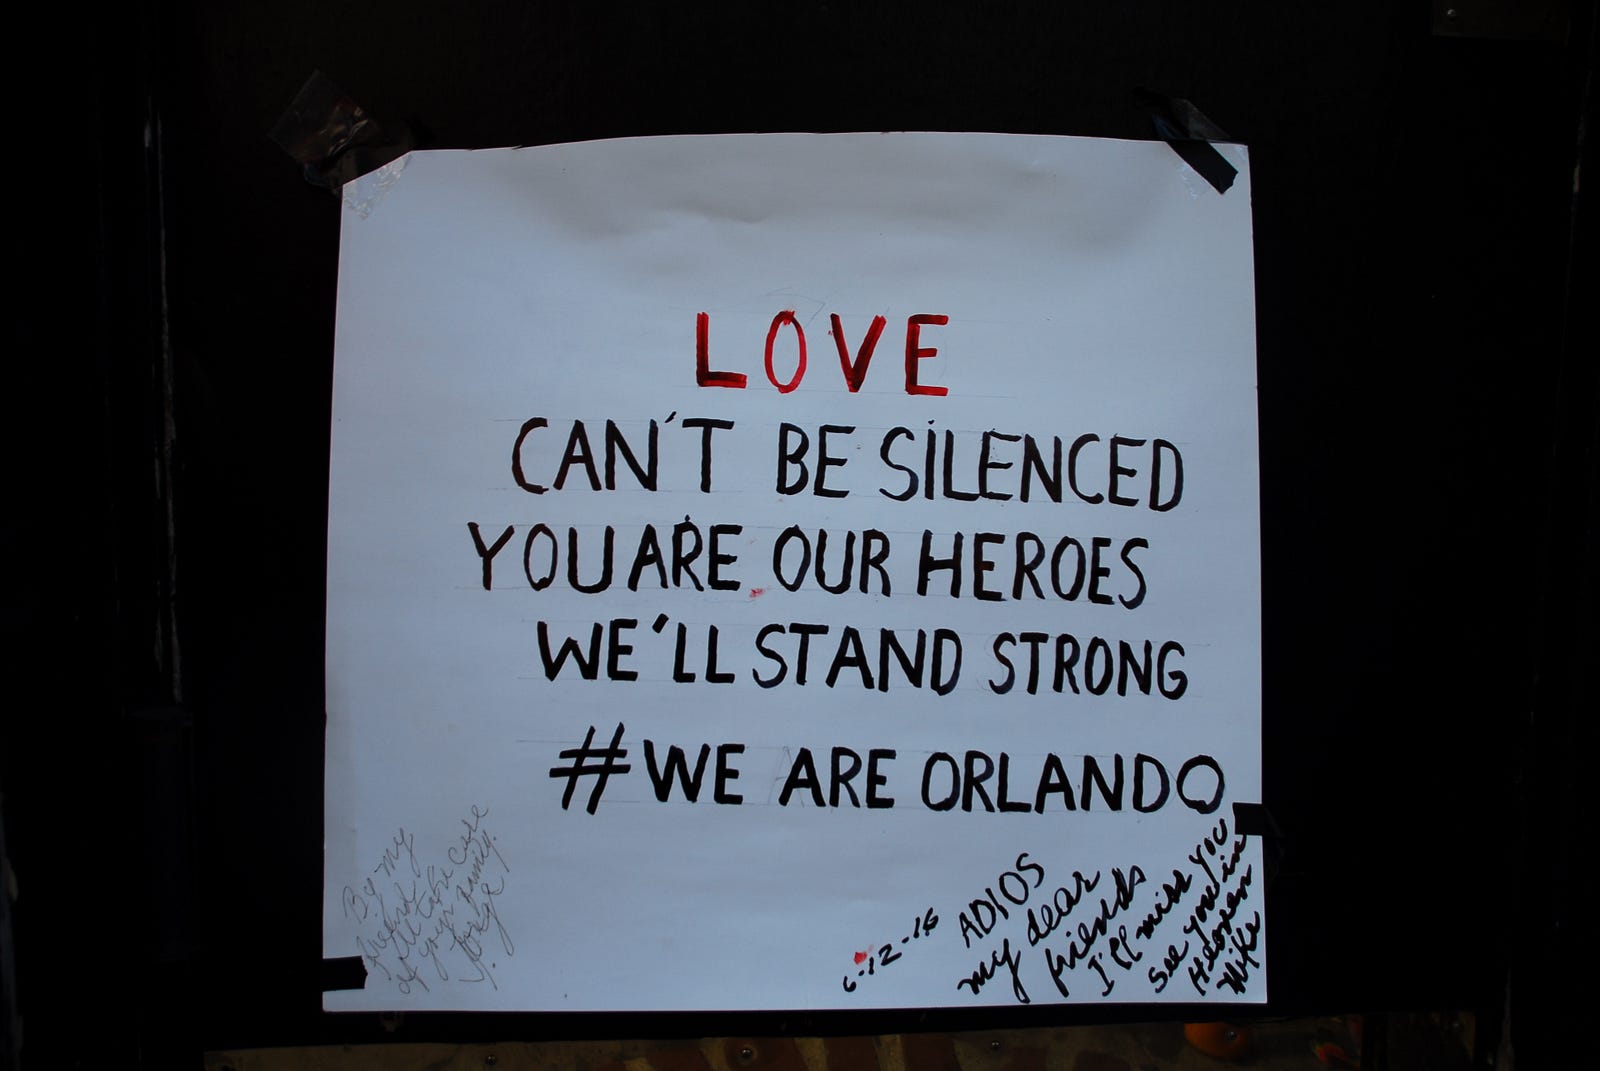 LOVE
CAN'T BE SILENCED
YOU ARE OUR HEROES
WE'LL STAND STRONG
#WE ARE ORLANDO
By my
friend
I'll take care
of your family.
Jorge Y.
6-12-16
ADIOS
my dear
friends
I'll miss YOU
See you in
Heaven
Mike